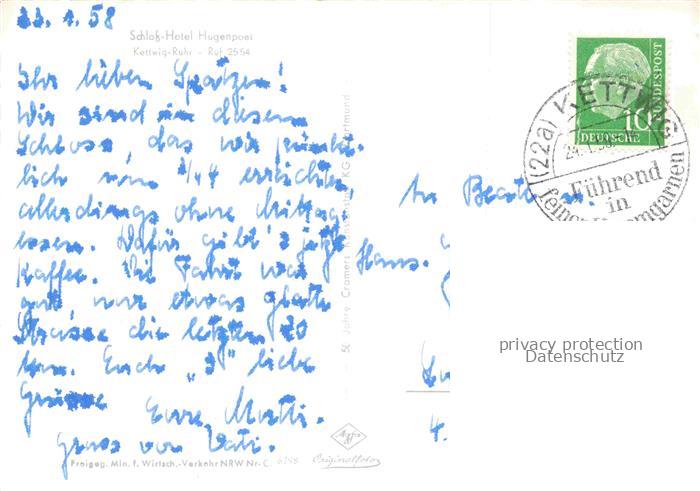 23.1.58
Schloß-Hotel Hugenpoet
Kettwig-Ruhr - Ruf 2554
Ihr lieben Spatzen!
Wir sind in diesem
Schloss, das wir pünkt-
lich um 3/4 4 erreichten,
allerdings ohne Mittag-
essen. Dafür gibt's jetzt
Kaffee. Die Fahrt war
gut, nur etwas glatte
Strasse die letzten 20
km. Euch "3" liebe
Grüsse Eure Mutti.
Gruss von Vati.
Freigeg. Min. f. Wirtsch.-Verkehr NRW Nr. C
Agfa
Originalfoto
50 Jahre Cramers Kunstanstalt KG Dortmund
An Beate u.
Hans.
4.
DEUTSCHE BUNDESPOST
10
(22a) KETTWIG
24.1.58
Führend
in
feinen Kammgarnen
privacy protection
Datenschutz